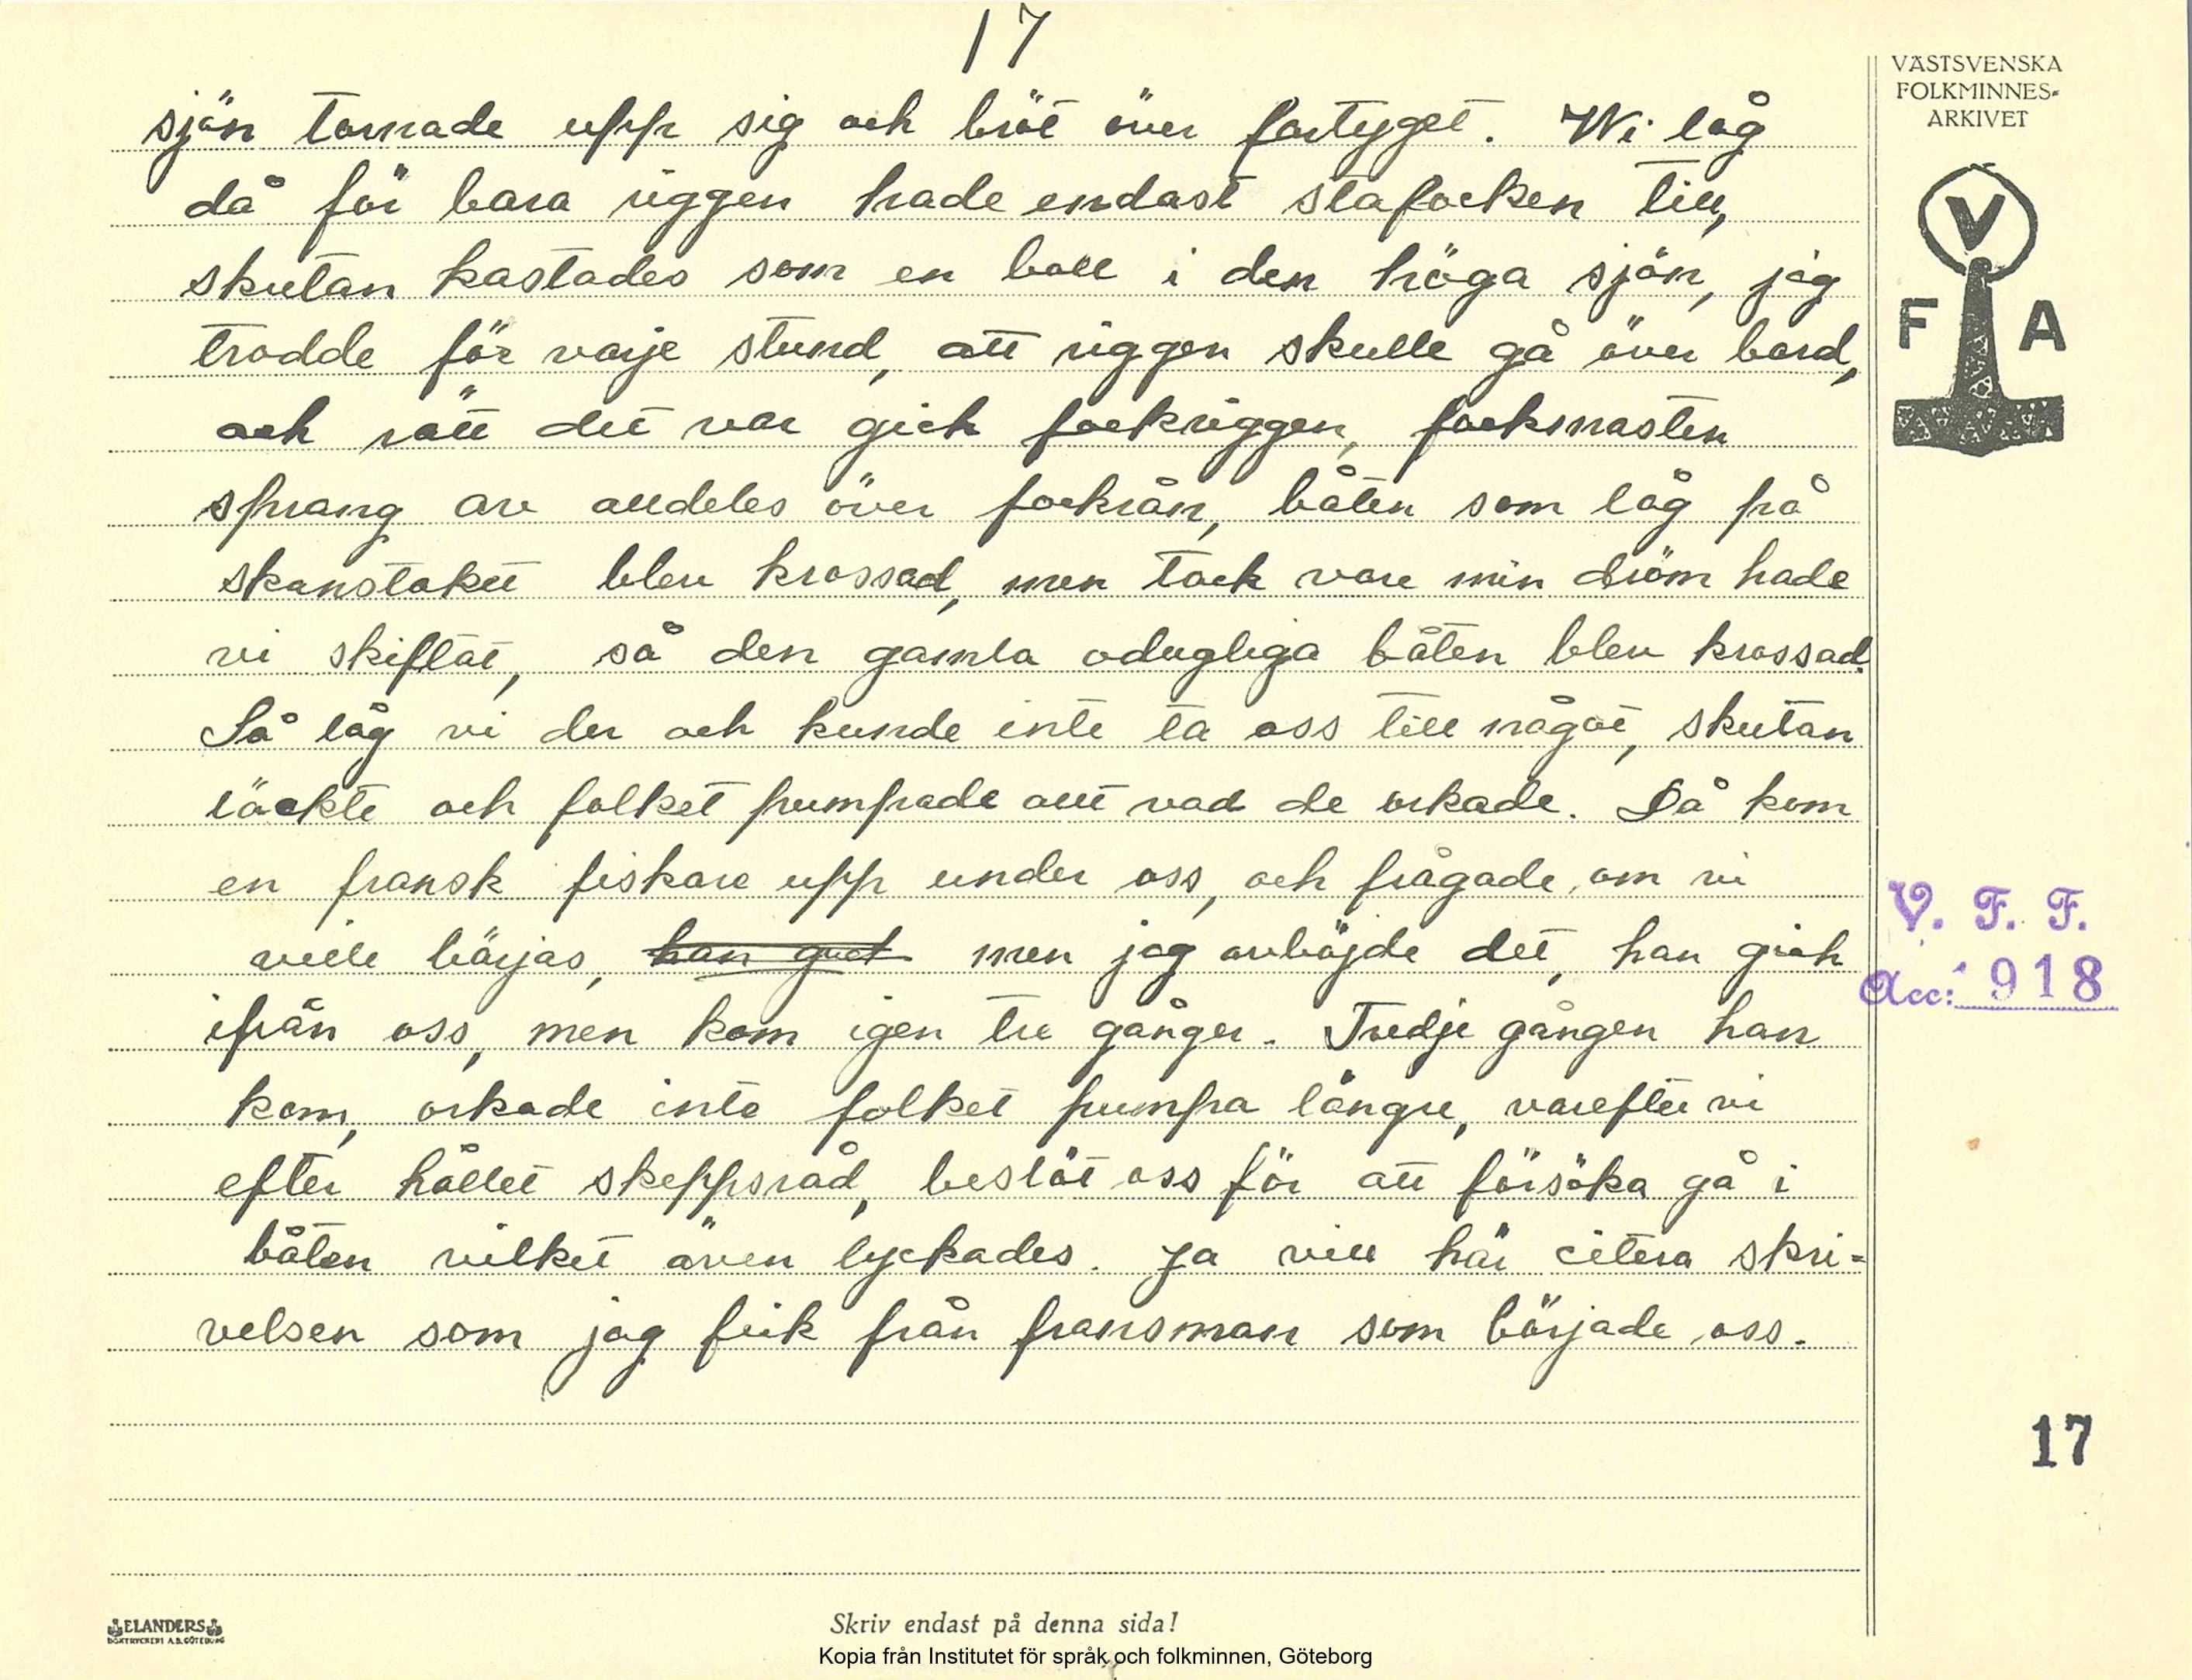 17
sjön tornade upp sig och bröt över fartyget. Wi låg
då för bara riggen hade endast stafocken till,
skutan kastades som en boll i den höga sjön, jag
trodde för varje stund, att riggen skulle gå över bord,
och rätt det var gick fockriggen, fockmasten
sprang av alldeles över fockrån, båten som låg på
skanstaket blev krossad, men tack vare min dröm hade
vi skiftat, så den gamla odugliga båten blev krossad.
Så låg vi der och kunde inte ta oss till något, skutan
läckte och folket pumpade allt vad de orkade. Då kom
en fransk fiskare upp under oss, och frågade om vi
ville bärjas, han men jag avböjde det, han gick
ifrån oss, men kom igen tre gånger. Tredje gången han
kom, orkade inte folket pumpa längre, varefter vi
efter hållet skeppsråd, beslöt oss för att försöka gå i
båten vilket även lyckades. Ja vill här citera skri=
velsen som jag fick från fransman som bärjade oss.
VÄSTSVENSKA
FOLKMINNES-
ARKIVET
V
F A
V. F. F.
Acc: 918
17
ELANDERS
BOKTRYCKERI A.B. GÖTEBORG
Skriv endast på denna sida!
Kopia från Institutet för språk och folkminnen, Göteborg